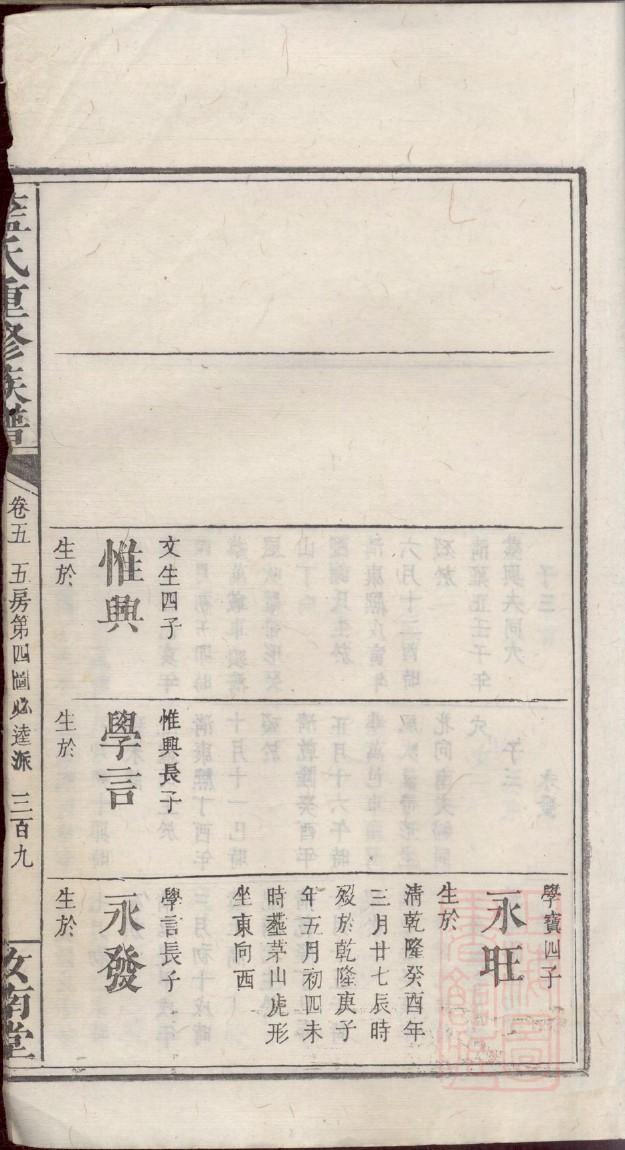 文生四子
惟興
生於
惟興長子
學言
生於
學寶四子
永旺
生於
清乾隆癸酉年
三月廿七辰時
殁於乾隆庚子
年五月初四未
時塟茅山虎形
坐東向西
學言長子
永發
生於
藍氏重修族譜
卷五 五房第四圖 達派 三百九
汝南堂